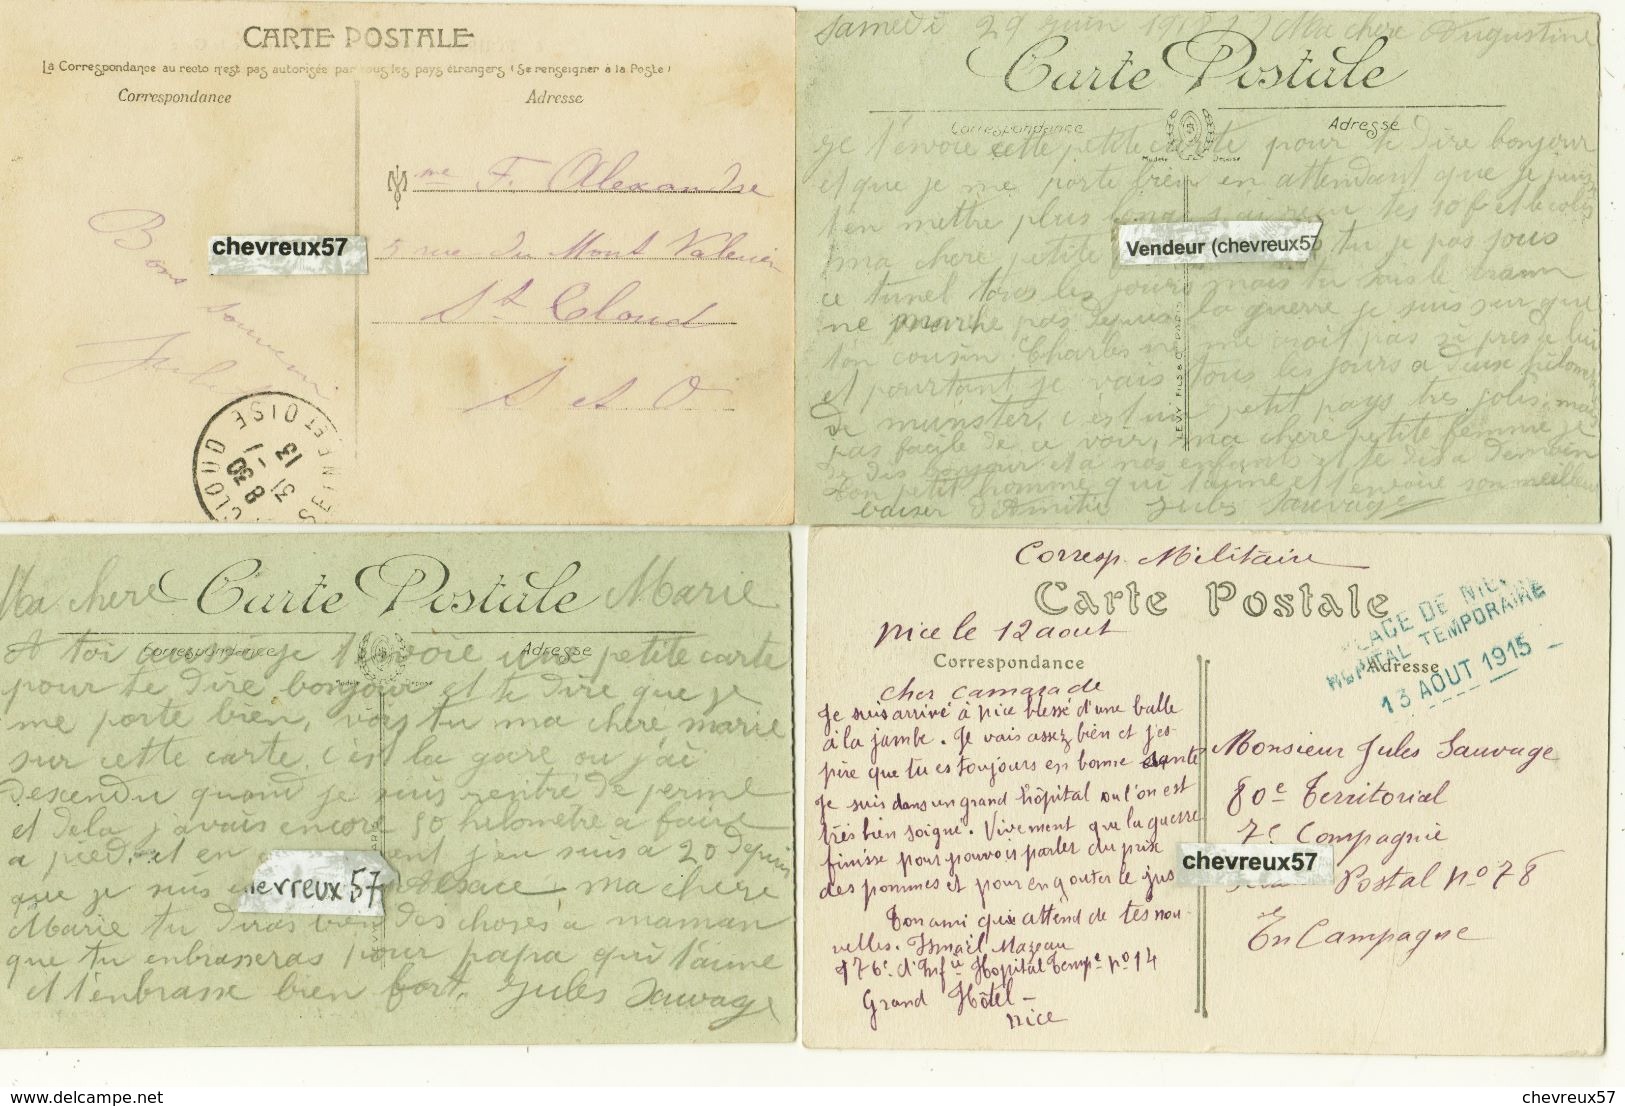 CARTE POSTALE
La Correspondance au recto n'est pas autorisée par tous les pays étrangers (Se renseigner à la Poste)
Correspondance
Adresse
Mme F. Alexandre
5 rue du Mont Valerien
St Cloud
S et O
Bons souvenir
chevreux57
CLOUD
SEINE ET OISE
8 30
31 - 1
13
Samedi 29 juin 1915 Ma chere Augustine
Carte Postale
Correspondance
Adresse
je t'envoie cette petite carte pour te dire bonjour
et que je me porte bien en attendant que je puis
t'en mettre plus long
Vendeur (chevreux57
ma chere petite tu je pas sous
ce tunel tous les jours mais tu sais le
ne marche pas depuis la guerre je suis sur que
ton cousin Charles ne me croit pas si pres de lui
et pourtant je vais tous les jours a deux kilomet
de munster, c'est un petit pays tres jolis, mais
pas facile de ce voir, ma chere petite femme je
te dis bonjour et a nos enfants et te dis a demain
ton petit homme qui t'aime et t'envoie son meilleur
baiser d'Amitié Jules Sauvage
LEVY FILS & Cie PARIS
Ma chere Marie
Carte Postale
Correspondance
Adresse
A toi aussi je t'envoie une petite carte
pour te dire bonjour et te dire que je
me porte bien, vois tu ma chere marie
sur cette carte c'est la gare ou j'ai
descendu quand je suis rentré de perme
et de la j'avais encore 50 kilometre a faire
a pied, et en ent j'en suis a 20 depuis
que je suis Alsace ma chere
chevreux57
Marie tu diras bien des choses a maman
que tu enbrasseras pour papa qui t'aime
et t'enbrasse bien fort. Jules Sauvage
Corresp. Militaire
Carte Postale
PLACE DE NICE
HOPITAL TEMPORAIRE
13 AOUT 1915
Nice le 12 aout
Correspondance
Adresse
Cher camarade
Je suis arrivé à Nice blessé d'une balle
à la jambe. Je vais assez bien et j'es-
père que tu es toujours en bonne santé
Je suis dans un grand hôpital ou l'on est
très bien soigné. Vivement que la guerre
finisse pour pouvoir parler du prix
des pommes et pour en gouter le jus
Ton ami qui attend de tes nou-
velles. Ismaël Mazeau
176e d'Infie Hopital Tempe no 14
Grand Hôtel -
Nice
Monsieur Jules Sauvage
80e Territorial
7e Compagnie
chevreux57
Postal No 78
En Campagne
chevreux57
chevreux57